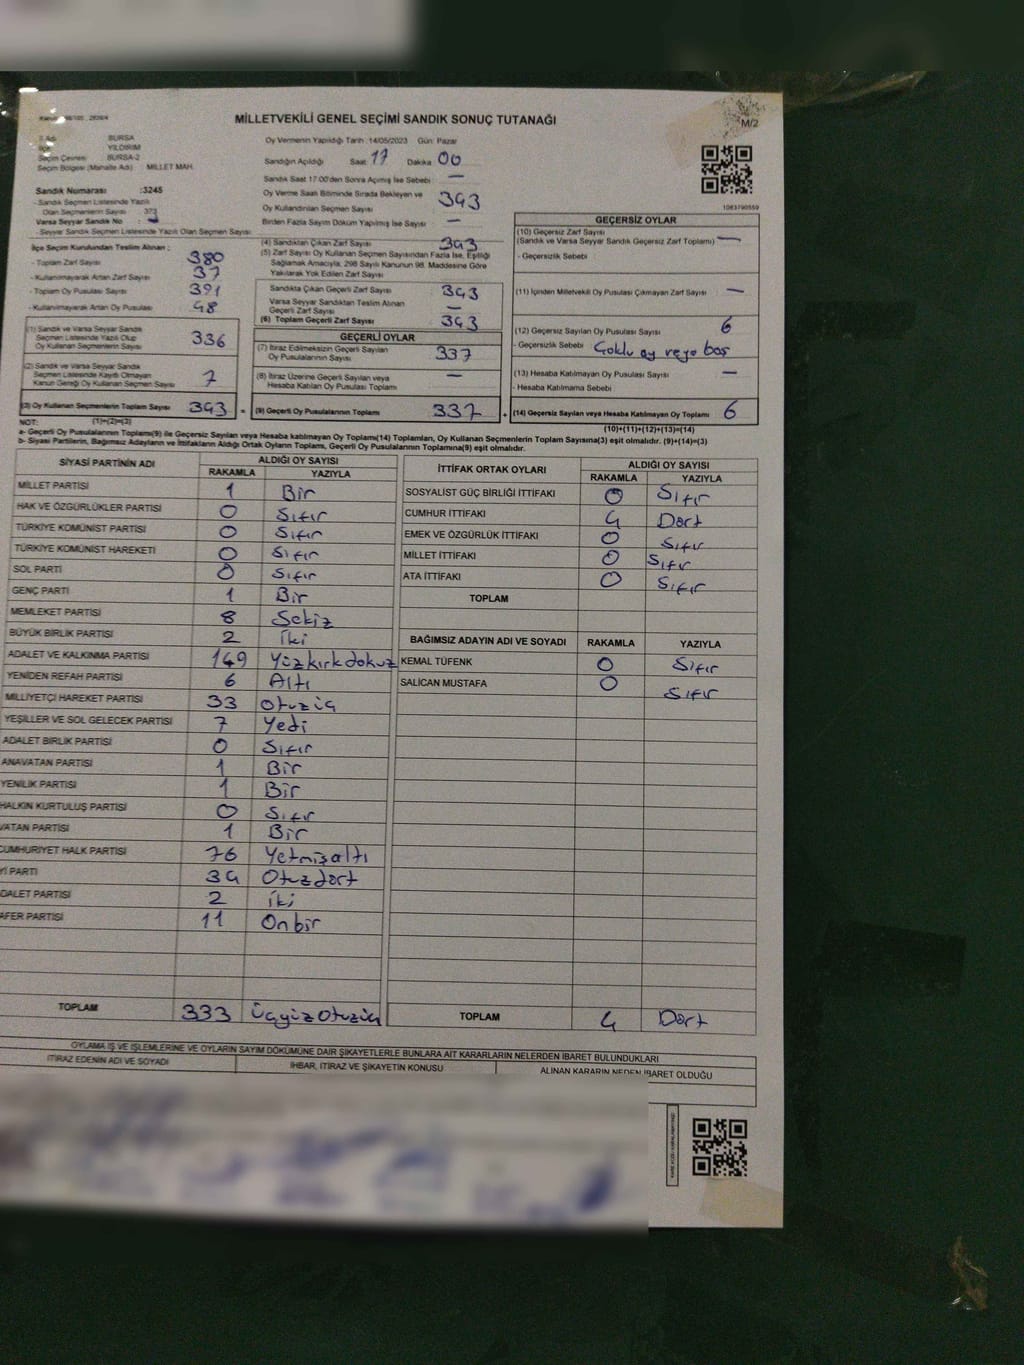 MİLLETVEKİLİ GENEL SEÇİMİ SANDIK SONUÇ TUTANAĞI
M/2
İl Adı BURSA
İlçe YILDIRIM
Seçim Çevresi BURSA-2
Seçim Bölgesi (Mahalle Adı) MILLET MAH.
Sandık Numarası :3245
- Sandık Seçmen Listesinde Yazılı
Olan Seçmenlerin Sayısı 373
Varsa Seyyar Sandık No : -
- Seyyar Sandık Seçmen Listesinde Yazılı Olan Seçmen Sayısı
Oy Vermenin Yapıldığı Tarih :14/05/2023 Gün: Pazar
Sandığın Açıldığı Saat 17 Dakika 00
Sandık Saat 17:00'den Sonra Açılmış İse Sebebi —
Oy Verme Saati Bitiminde Sırada Bekleyen ve
Oy Kullandırılan Seçmen Sayısı 343
Birden Fazla Sayım Döküm Yapılmış İse Sayısı —
1083790559
İlçe Seçim Kurulundan Teslim Alınan ;
- Toplam Zarf Sayısı 380
- Kullanılmayarak Artan Zarf Sayısı 37
- Toplam Oy Pusulası Sayısı 391
- Kullanılmayarak Artan Oy Pusulası 48
(1) Sandık ve Varsa Seyyar Sandık
Seçmen Listesinde Yazılı Olup
Oy Kullanan Seçmenlerin Sayısı 336
(2) Sandık ve Varsa Seyyar Sandık
Seçmen Listesinde Kayıtlı Olmayan
Kanun Gereği Oy Kullanan Seçmen Sayısı 7
(3) Oy Kullanan Seçmenlerin Toplam Sayısı 343 =
(1)+(2)=(3)
(4) Sandıktan Çıkan Zarf Sayısı 343
(5) Zarf Sayısı Oy Kullanan Seçmen Sayısından Fazla İse, Eşitliği
Sağlamak Amacıyla, 298 Sayılı Kanunun 98. Maddesine Göre
Yakılarak Yok Edilen Zarf Sayısı
Sandıkta Çıkan Geçerli Zarf Sayısı 343
Varsa Seyyar Sandıktan Teslim Alınan
Geçerli Zarf Sayısı —
(6) Toplam Geçerli Zarf Sayısı 343
GEÇERLİ OYLAR
(7) İtiraz Edilmeksizin Geçerli Sayılan
Oy Pusulalarının Sayısı 337
(8) İtiraz Üzerine Geçerli Sayılan veya
Hesaba Katılan Oy Pusulası Toplamı —
(9) Geçerli Oy Pusulalarının Toplamı 337 +
GEÇERSİZ OYLAR
(10) Geçersiz Zarf Sayısı
(Sandık ve Varsa Seyyar Sandık Geçersiz Zarf Toplamı) —
- Geçersizlik Sebebi
(11) İçinden Milletvekili Oy Pusulası Çıkmayan Zarf Sayısı —
(12) Geçersiz Sayılan Oy Pusulası Sayısı 6
- Geçersizlik Sebebi Çoklu oy veya boş
(13) Hesaba Katılmayan Oy Pusulası Sayısı —
- Hesaba Katılmama Sebebi
(14) Geçersiz Sayılan veya Hesaba Katılmayan Oy Toplamı 6
(10)+(11)+(12)+(13)=(14)
NOT:
a- Geçerli Oy Pusulalarının Toplamı(9) ile Geçersiz Sayılan veya Hesaba katılmayan Oy Toplamı(14) Toplamları, Oy Kullanan Seçmenlerin Toplam Sayısına(3) eşit olmalıdır. (9)+(14)=(3)
b- Siyasi Partilerin, Bağımsız Adayların ve İttifakların Aldığı Ortak Oyların Toplamı, Geçerli Oy Pusulalarının Toplamına(9) eşit olmalıdır.
SİYASİ PARTİNİN ADI ALDIĞI OY SAYISI
RAKAMLA YAZIYLA
MİLLET PARTİSİ 1 Bir
HAK VE ÖZGÜRLÜKLER PARTİSİ 0 Sıfır
TÜRKİYE KOMÜNİST PARTİSİ 0 Sıfır
TÜRKİYE KOMÜNİST HAREKETİ 0 Sıfır
SOL PARTİ 0 Sıfır
GENÇ PARTİ 1 Bir
MEMLEKET PARTİSİ 8 Sekiz
BÜYÜK BİRLİK PARTİSİ 2 İki
ADALET VE KALKINMA PARTİSİ 149 Yüzkırkdokuz
YENİDEN REFAH PARTİSİ 6 Altı
MİLLİYETÇİ HAREKET PARTİSİ 33 Otuzüç
YEŞİLLER VE SOL GELECEK PARTİSİ 7 Yedi
ADALET BİRLİK PARTİSİ 0 Sıfır
ANAVATAN PARTİSİ 1 Bir
YENİLİK PARTİSİ 1 Bir
HALKIN KURTULUŞ PARTİSİ 0 Sıfır
VATAN PARTİSİ 1 Bir
CUMHURİYET HALK PARTİSİ 76 Yetmişaltı
Yİ PARTİ 34 Otuzdört
DALET PARTİSİ 2 İki
AFER PARTİSİ 11 Onbir
TOPLAM 333 Üçyüzotuzüç
İTTİFAK ORTAK OYLARI ALDIĞI OY SAYISI
RAKAMLA YAZIYLA
SOSYALİST GÜÇ BİRLİĞİ İTTİFAKI 0 Sıfır
CUMHUR İTTİFAKI 4 Dört
EMEK VE ÖZGÜRLÜK İTTİFAKI 0 Sıfır
MİLLET İTTİFAKI 0 Sıfır
ATA İTTİFAKI 0 Sıfır
TOPLAM
BAĞIMSIZ ADAYIN ADI VE SOYADI RAKAMLA YAZIYLA
KEMAL TÜFENK 0 Sıfır
SALİCAN MUSTAFA 0 Sıfır
TOPLAM 4 Dört
OYLAMA İŞ VE İŞLEMLERİNE VE OYLARIN SAYIM DÖKÜMÜNE DAİR ŞİKAYETLERLE BUNLARA AİT KARARLARIN NELERDEN İBARET BULUNDUKLARI
İTİRAZ EDENİN ADI VE SOYADI İHBAR, İTİRAZ VE ŞİKAYETİN KONUSU ALINAN KARARIN NEDEN İBARET OLDUĞU